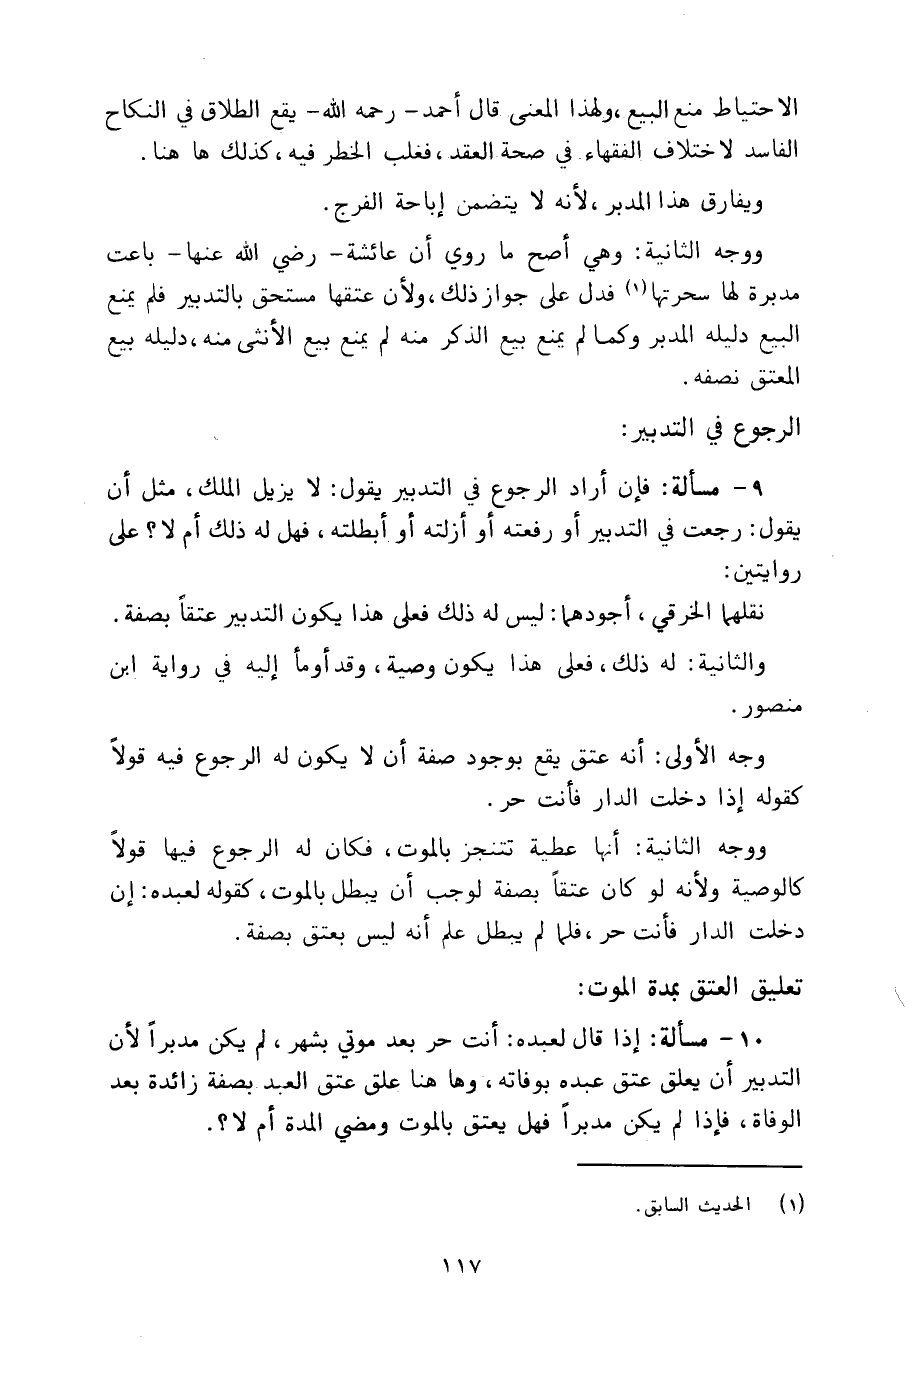 الاحتياط منع البيع ،ولهذا المعنى قال أحمد- رحمه الله- يقع الطلاق في النكاح
الفاسد لاختلاف الفقهاء في صحة العقد ،فغلب الخطر فيه ،كذلك ها هنا .
ويفارق هذا المدبر ،لأنه لا يتضمن إباحة الفرج .
ووجه الثانية: وهي أصح ما روي أن عائشة- رضي الله عنها- باعت
مدبرة لها سحرتها(١) فدل على جواز ذلك ،ولأن عتقها مستحق بالتدبير فلم يمنع
البيع دليله المدبر وكما لم يمنع بيع الذكر منه لم يمنع بيع الأنثى منه ،دليله بيع
المعتق نصفه .
الرجوع في التدبير:
٩- مسألة: فإن أراد الرجوع في التدبير يقول: لا يزيل الملك ، مثل أن
يقول: رجعت في التدبير أو رفعته أو أزلته أو أبطلته ، فهل له ذلك أم لا؟ على
روايتين:
نقلها الخرقي ، أجودهما: ليس له ذلك فعلى هذا يكون التدبير عتقاً بصفة .
والثانية: له ذلك ،فعلى هذا يكون وصية ، وقد أومأ إليه في رواية ابن
منصور .
وجه الأولى: أنه عتق يقع بوجود صفة أن لا يكون له الرجوع فيه قولاً
كقوله إذا دخلت الدار فأنت حر .
ووجه الثانية: أنها عطية تتنجز بالموت ، فكان له الرجوع فيها قولاً
كالوصية ولأنه لو كان عتقاً بصفة لوجب أن يبطل بالموت ، كقوله لعبده: إن
دخلت الدار فأنت حر ،فلما لم يبطل علم أنه ليس بعتق بصفة .
تعليق العتق بمدة الموت:
١٠- مسألة: إذا قال لعبده: أنت حر بعد موتي بشهر ، لم يكن مدبراً لأن
التدبير أن يعلق عتق عبده بوفاته ، وها هنا علق عتق العبد بصفة زائدة بعد
الوفاة ، فإذا لم يكن مدبراً فهل يعتق بالموت ومضي المدة أم لا؟ .
(١) الحديث السابق .
١١٧